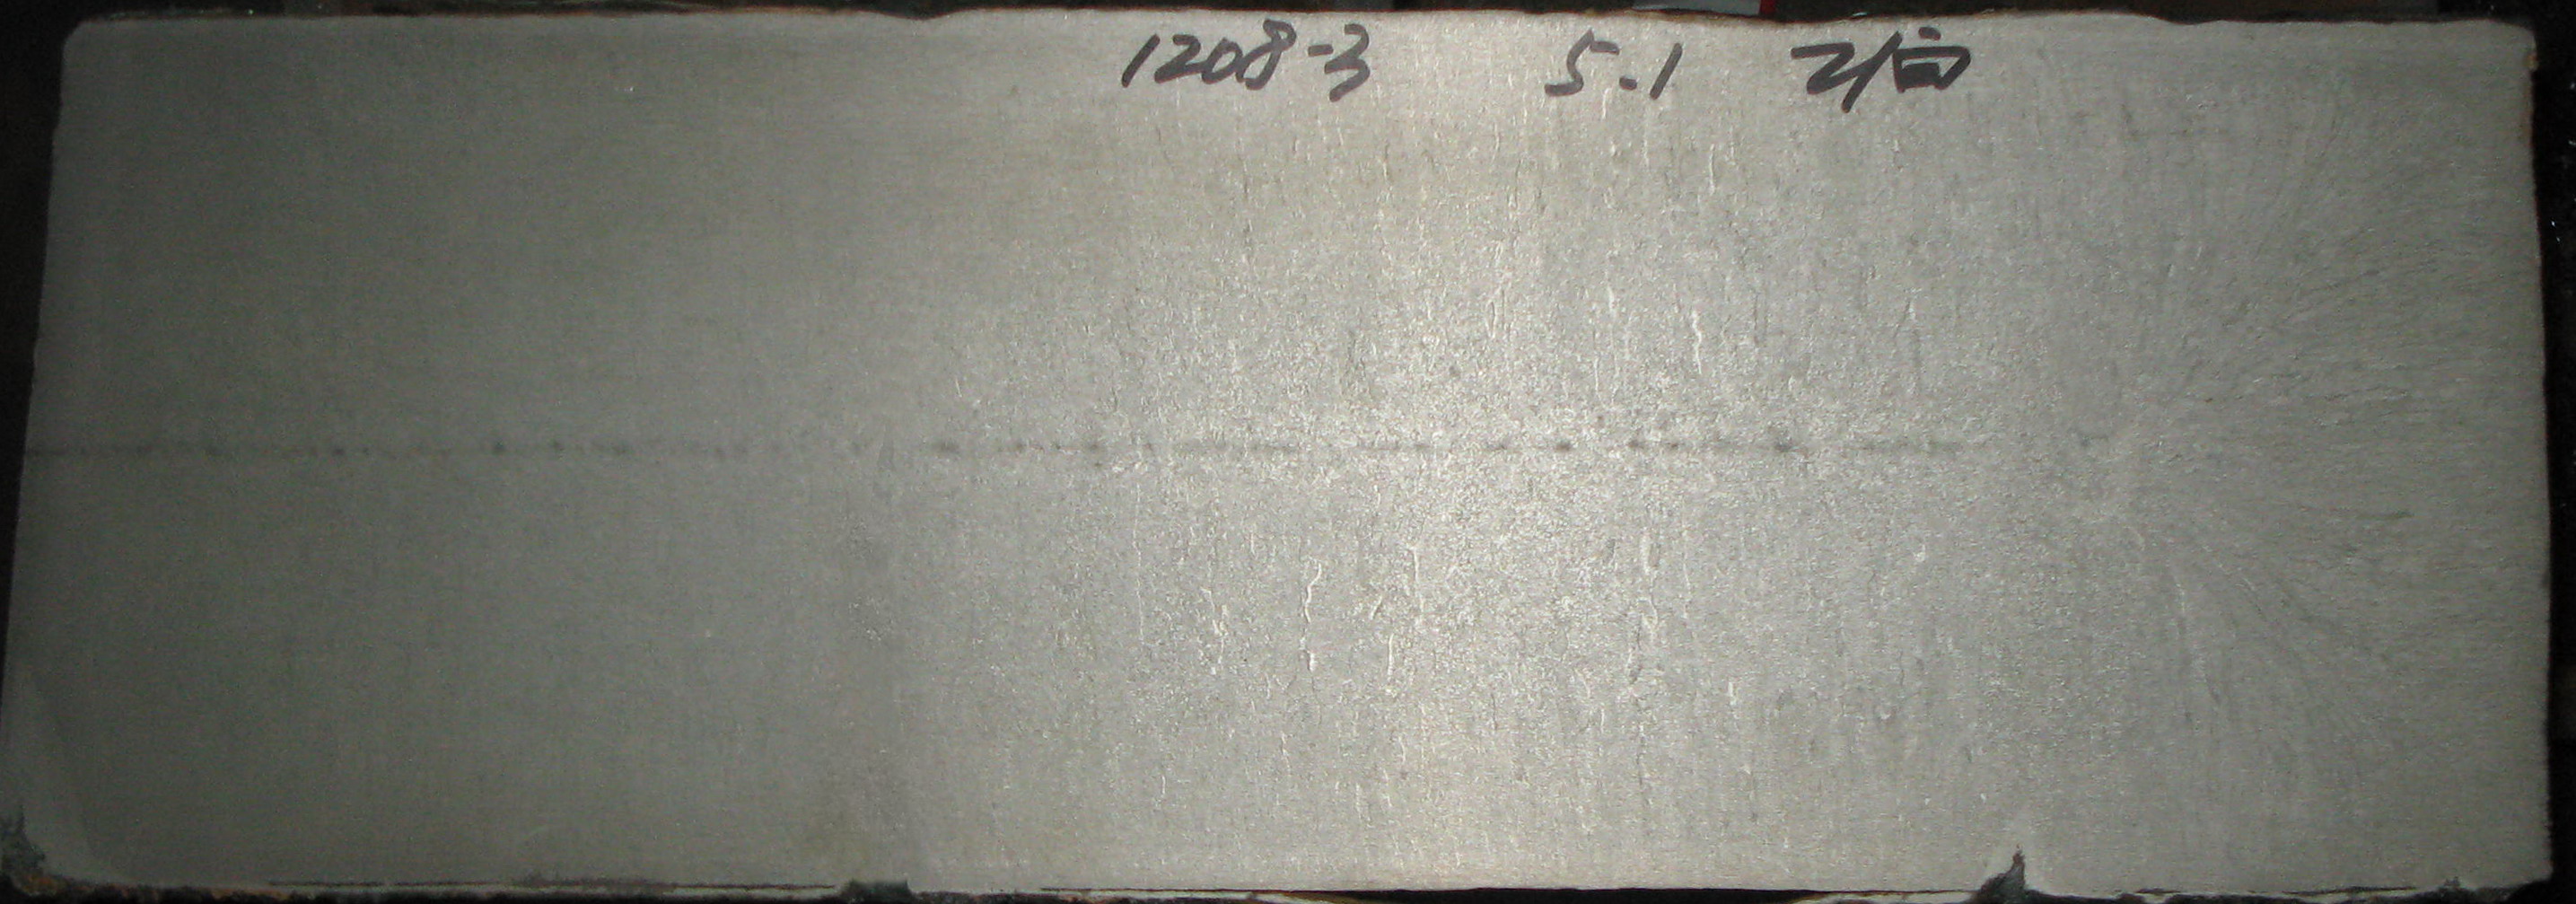 1208-3 5.1 2/向